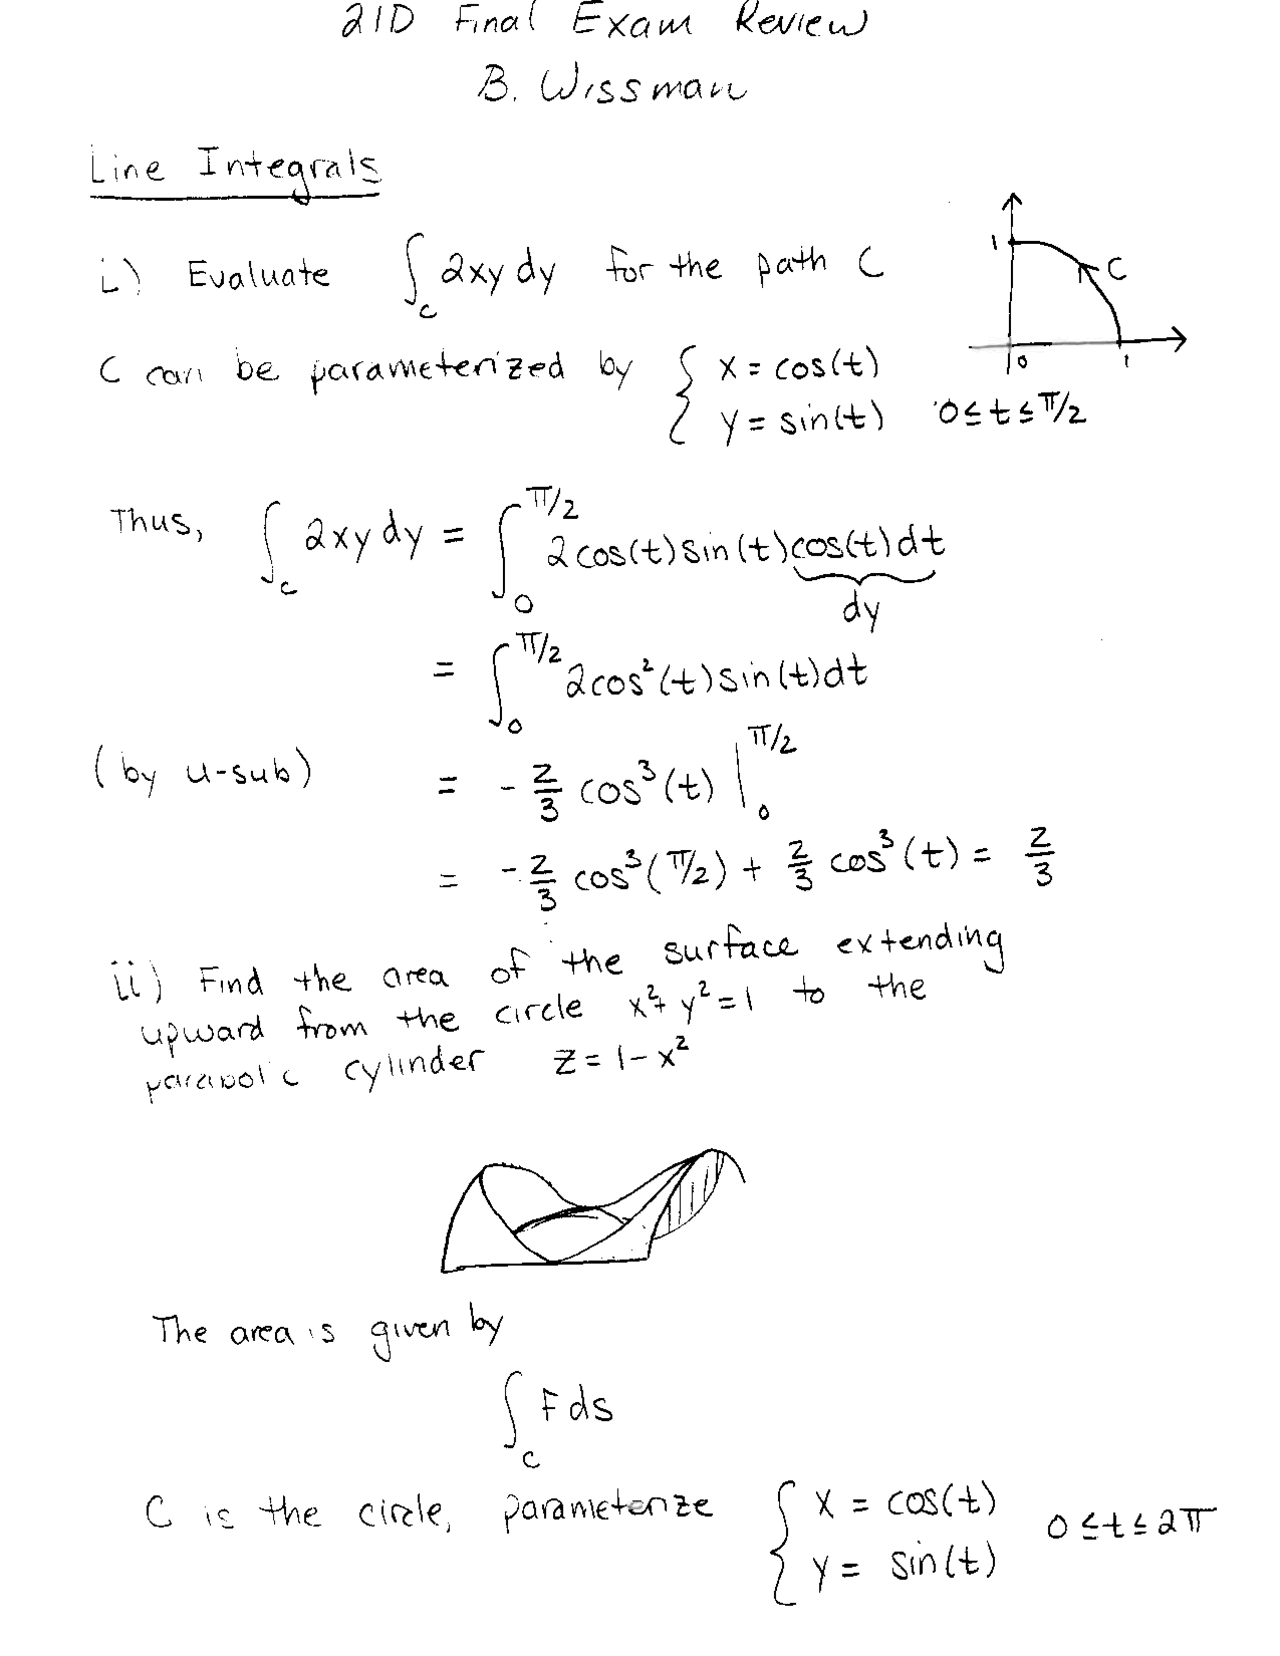 21D Final Exam Review
B. Wissman
Line Integrals
i) Evaluate ∫_C 2xy dy for the path C
1 C
0 1
C can be parameterized by { x = cos(t)
y = sin(t) 0 ≤ t ≤ π/2
Thus, ∫_C 2xy dy = ∫_0^{π/2} 2cos(t)sin(t)cos(t)dt
dy
= ∫_0^{π/2} 2cos²(t)sin(t)dt
(by u-sub) = -2/3 cos³(t) |_0^{π/2}
= -2/3 cos³(π/2) + 2/3 cos³(t) = 2/3
ii) Find the area of the surface extending
upward from the circle x²+y²=1 to the
parabolic cylinder z = 1-x²
The area is given by
∫_C F ds
C is the circle, parameterize { x = cos(t)
y = sin(t) 0 ≤ t ≤ 2π